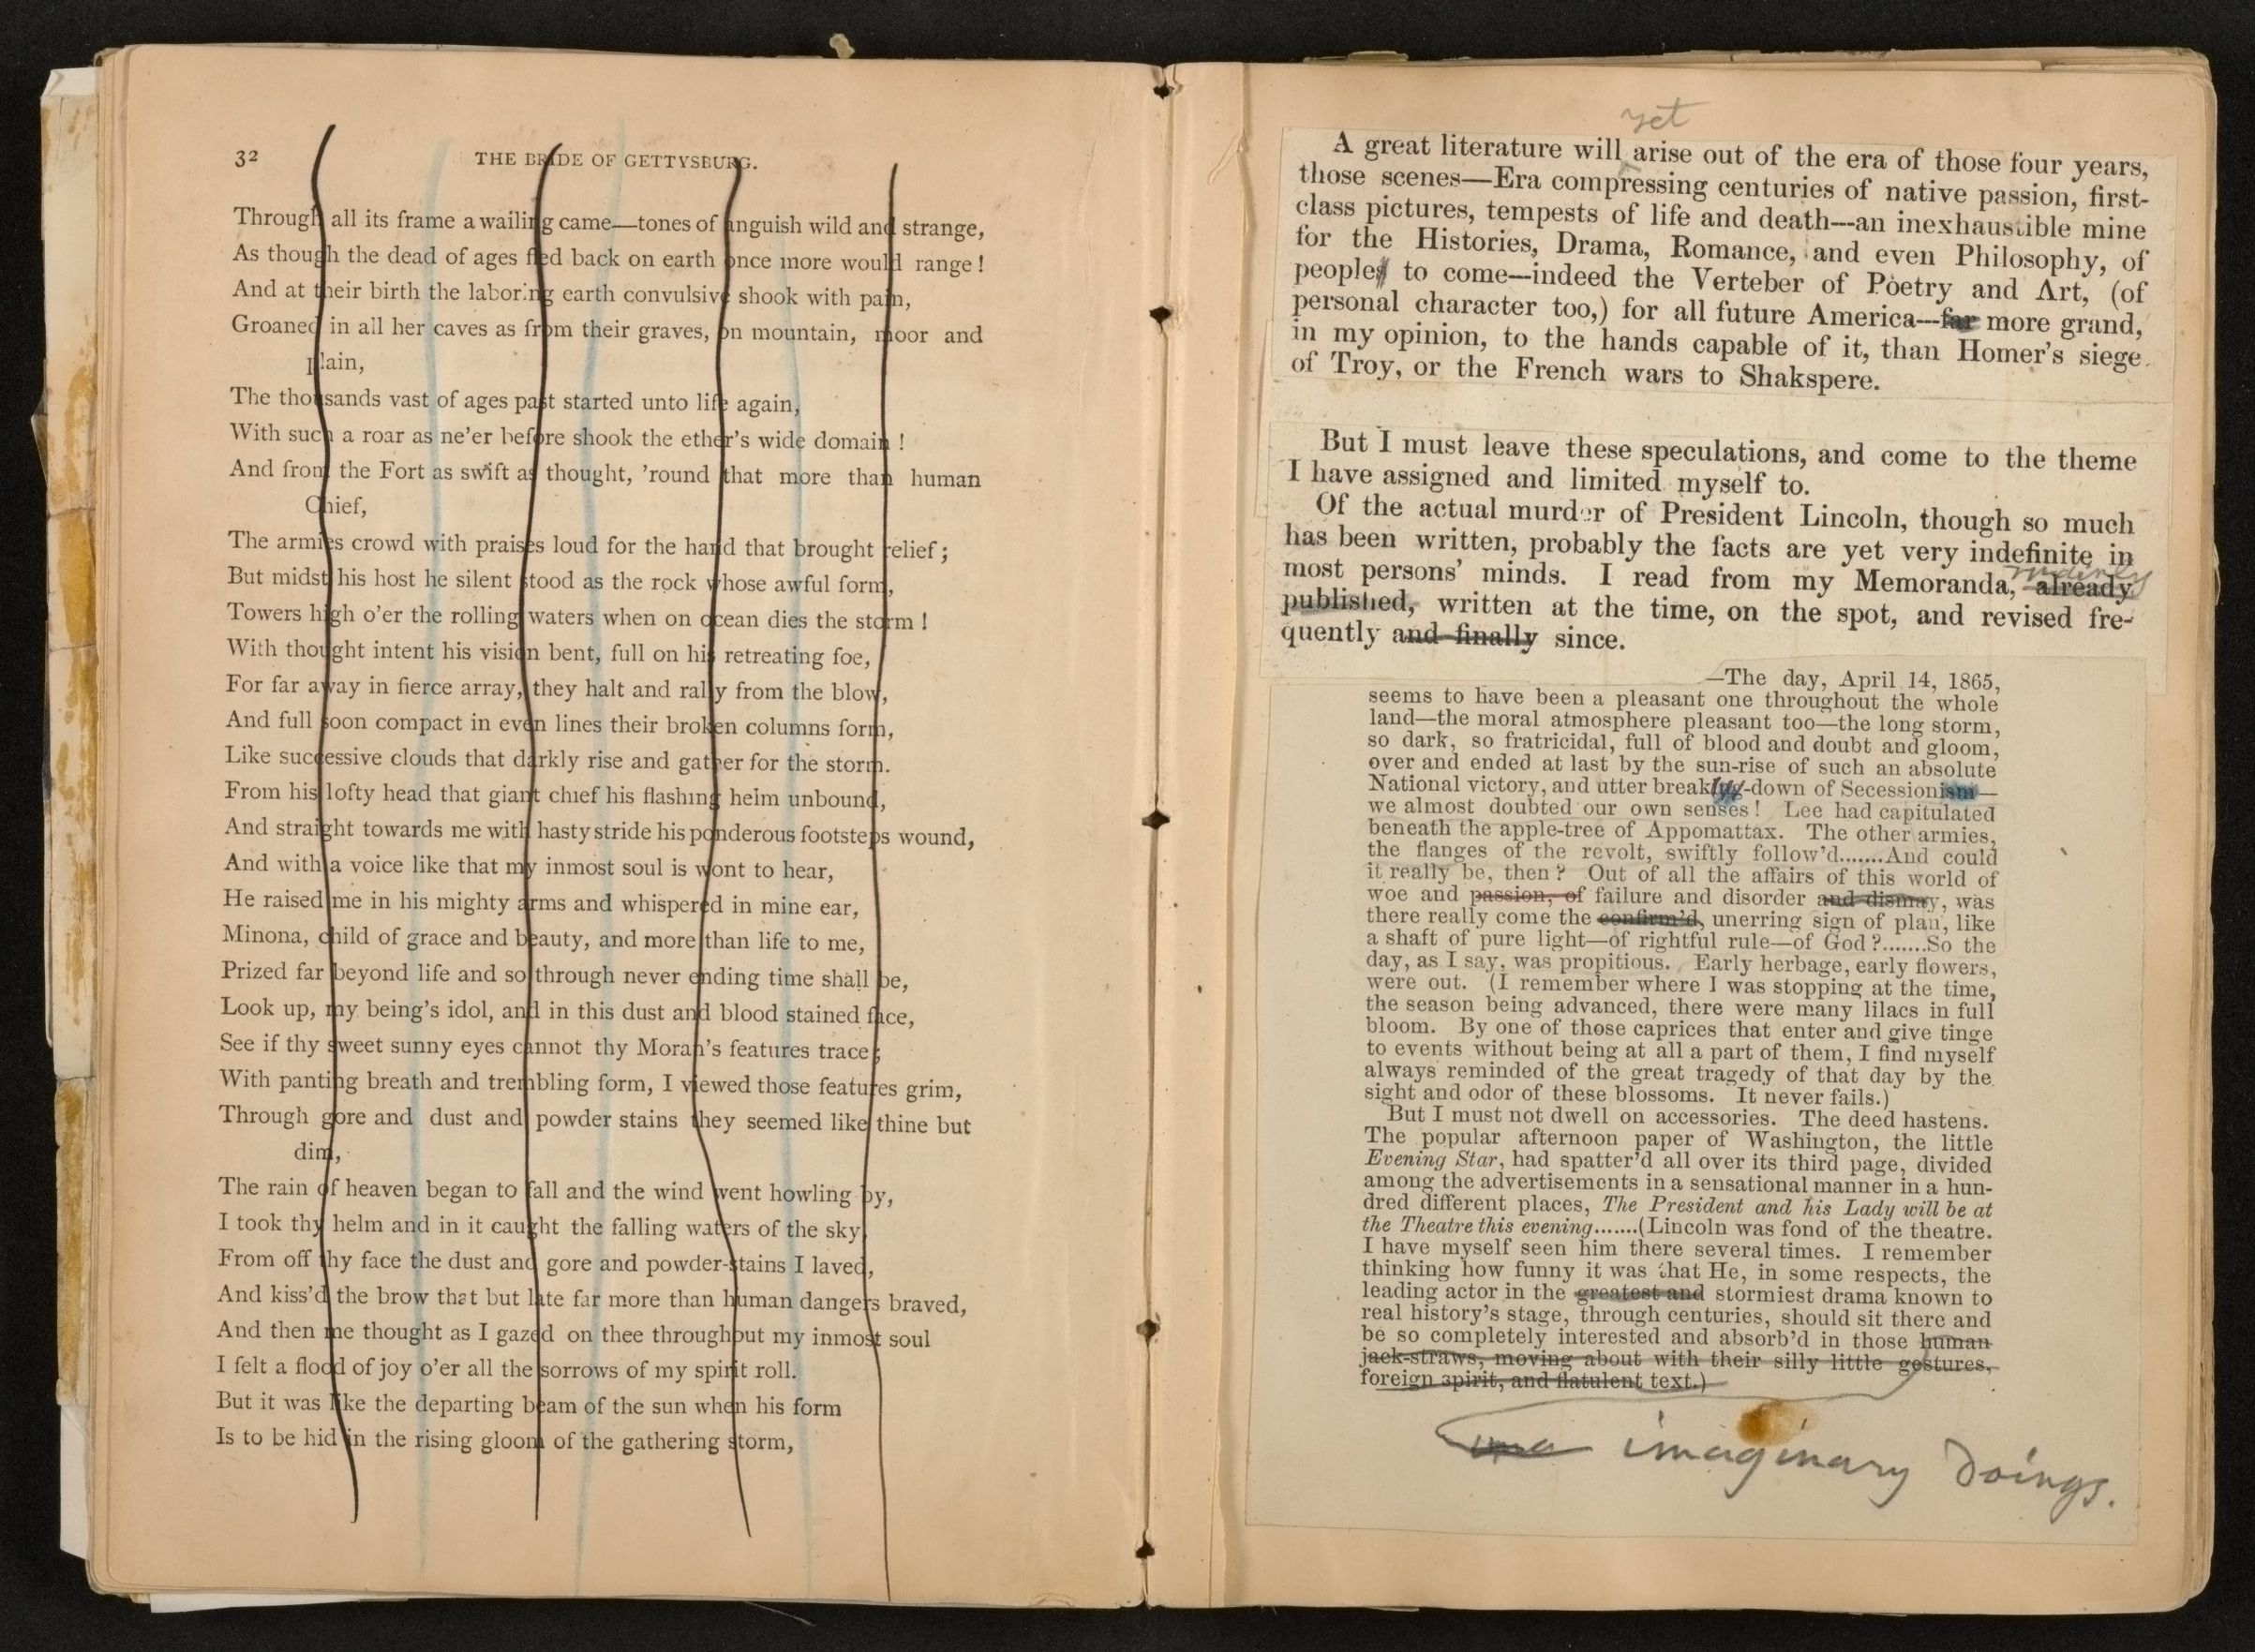 32
THE BRIDE OF GETTYSBURG.
Through all its frame a wailing came—tones of anguish wild and strange,
As though the dead of ages fled back on earth once more would range!
And at their birth the laboring earth convulsive shook with pain,
Groaned in all her caves as from their graves, on mountain, moor and
plain,
The thousands vast of ages past started unto life again,
With such a roar as ne'er before shook the ether's wide domain!
And from the Fort as swift as thought, 'round that more than human
Chief,
The armies crowd with praises loud for the hand that brought relief;
But midst his host he silent stood as the rock whose awful form,
Towers high o'er the rolling waters when on ocean dies the storm!
With thought intent his vision bent, full on his retreating foe,
For far away in fierce array, they halt and rally from the blow,
And full soon compact in even lines their broken columns form,
Like successive clouds that darkly rise and gather for the storm.
From his lofty head that giant chief his flashing helm unbound,
And straight towards me with hasty stride his ponderous footsteps wound,
And with a voice like that my inmost soul is wont to hear,
He raised me in his mighty arms and whispered in mine ear,
Minona, child of grace and beauty, and more than life to me,
Prized far beyond life and so through never ending time shall be,
Look up, my being's idol, and in this dust and blood stained face,
See if thy sweet sunny eyes cannot thy Moran's features trace;
With panting breath and trembling form, I viewed those features grim,
Through gore and dust and powder stains they seemed like thine but
dim,
The rain of heaven began to fall and the wind went howling by,
I took thy helm and in it caught the falling waters of the sky,
From off thy face the dust and gore and powder-stains I laved,
And kiss'd the brow that but late far more than human dangers braved,
And then me thought as I gazed on thee throughout my inmost soul
I felt a flood of joy o'er all the sorrows of my spirit roll.
But it was like the departing beam of the sun when his form
Is to be hid in the rising gloom of the gathering storm,
yet
A great literature will arise out of the era of those four years,
those scenes—Era compressing centuries of native passion, first-
class pictures, tempests of life and death—an inexhaustible mine
for the Histories, Drama, Romance, and even Philosophy, of
peoples to come—indeed the Verteber of Poetry and Art, (of
personal character too,) for all future America—far more grand,
in my opinion, to the hands capable of it, than Homer's siege
of Troy, or the French wars to Shakspere.
But I must leave these speculations, and come to the theme
I have assigned and limited myself to.
Of the actual murder of President Lincoln, though so much
has been written, probably the facts are yet very indefinite in
most persons' minds. I read from my Memoranda, already
published, written at the time, on the spot, and revised fre-
quently and finally since.
—The day, April 14, 1865,
seems to have been a pleasant one throughout the whole
land—the moral atmosphere pleasant too—the long storm,
so dark, so fratricidal, full of blood and doubt and gloom,
over and ended at last by the sun-rise of such an absolute
National victory, and utter breaking-down of Secessionism—
we almost doubted our own senses! Lee had capitulated
beneath the apple-tree of Appomattax. The other armies,
the flanges of the revolt, swiftly follow'd.......And could
it really be, then? Out of all the affairs of this world of
woe and passion, of failure and disorder and dismay, was
there really come the confirm'd, unerring sign of plan, like
a shaft of pure light—of rightful rule—of God?.......So the
day, as I say, was propitious. Early herbage, early flowers,
were out. (I remember where I was stopping at the time,
the season being advanced, there were many lilacs in full
bloom. By one of those caprices that enter and give tinge
to events without being at all a part of them, I find myself
always reminded of the great tragedy of that day by the
sight and odor of these blossoms. It never fails.)
But I must not dwell on accessories. The deed hastens.
The popular afternoon paper of Washington, the little
Evening Star, had spatter'd all over its third page, divided
among the advertisements in a sensational manner in a hun-
dred different places, The President and his Lady will be at
the Theatre this evening.......(Lincoln was fond of the theatre.
I have myself seen him there several times. I remember
thinking how funny it was that He, in some respects, the
leading actor in the greatest and stormiest drama known to
real history's stage, through centuries, should sit there and
be so completely interested and absorb'd in those human
jack-straws, moving about with their silly little gestures,
foreign spirit, and flatulent text.)
ima imaginary doings.